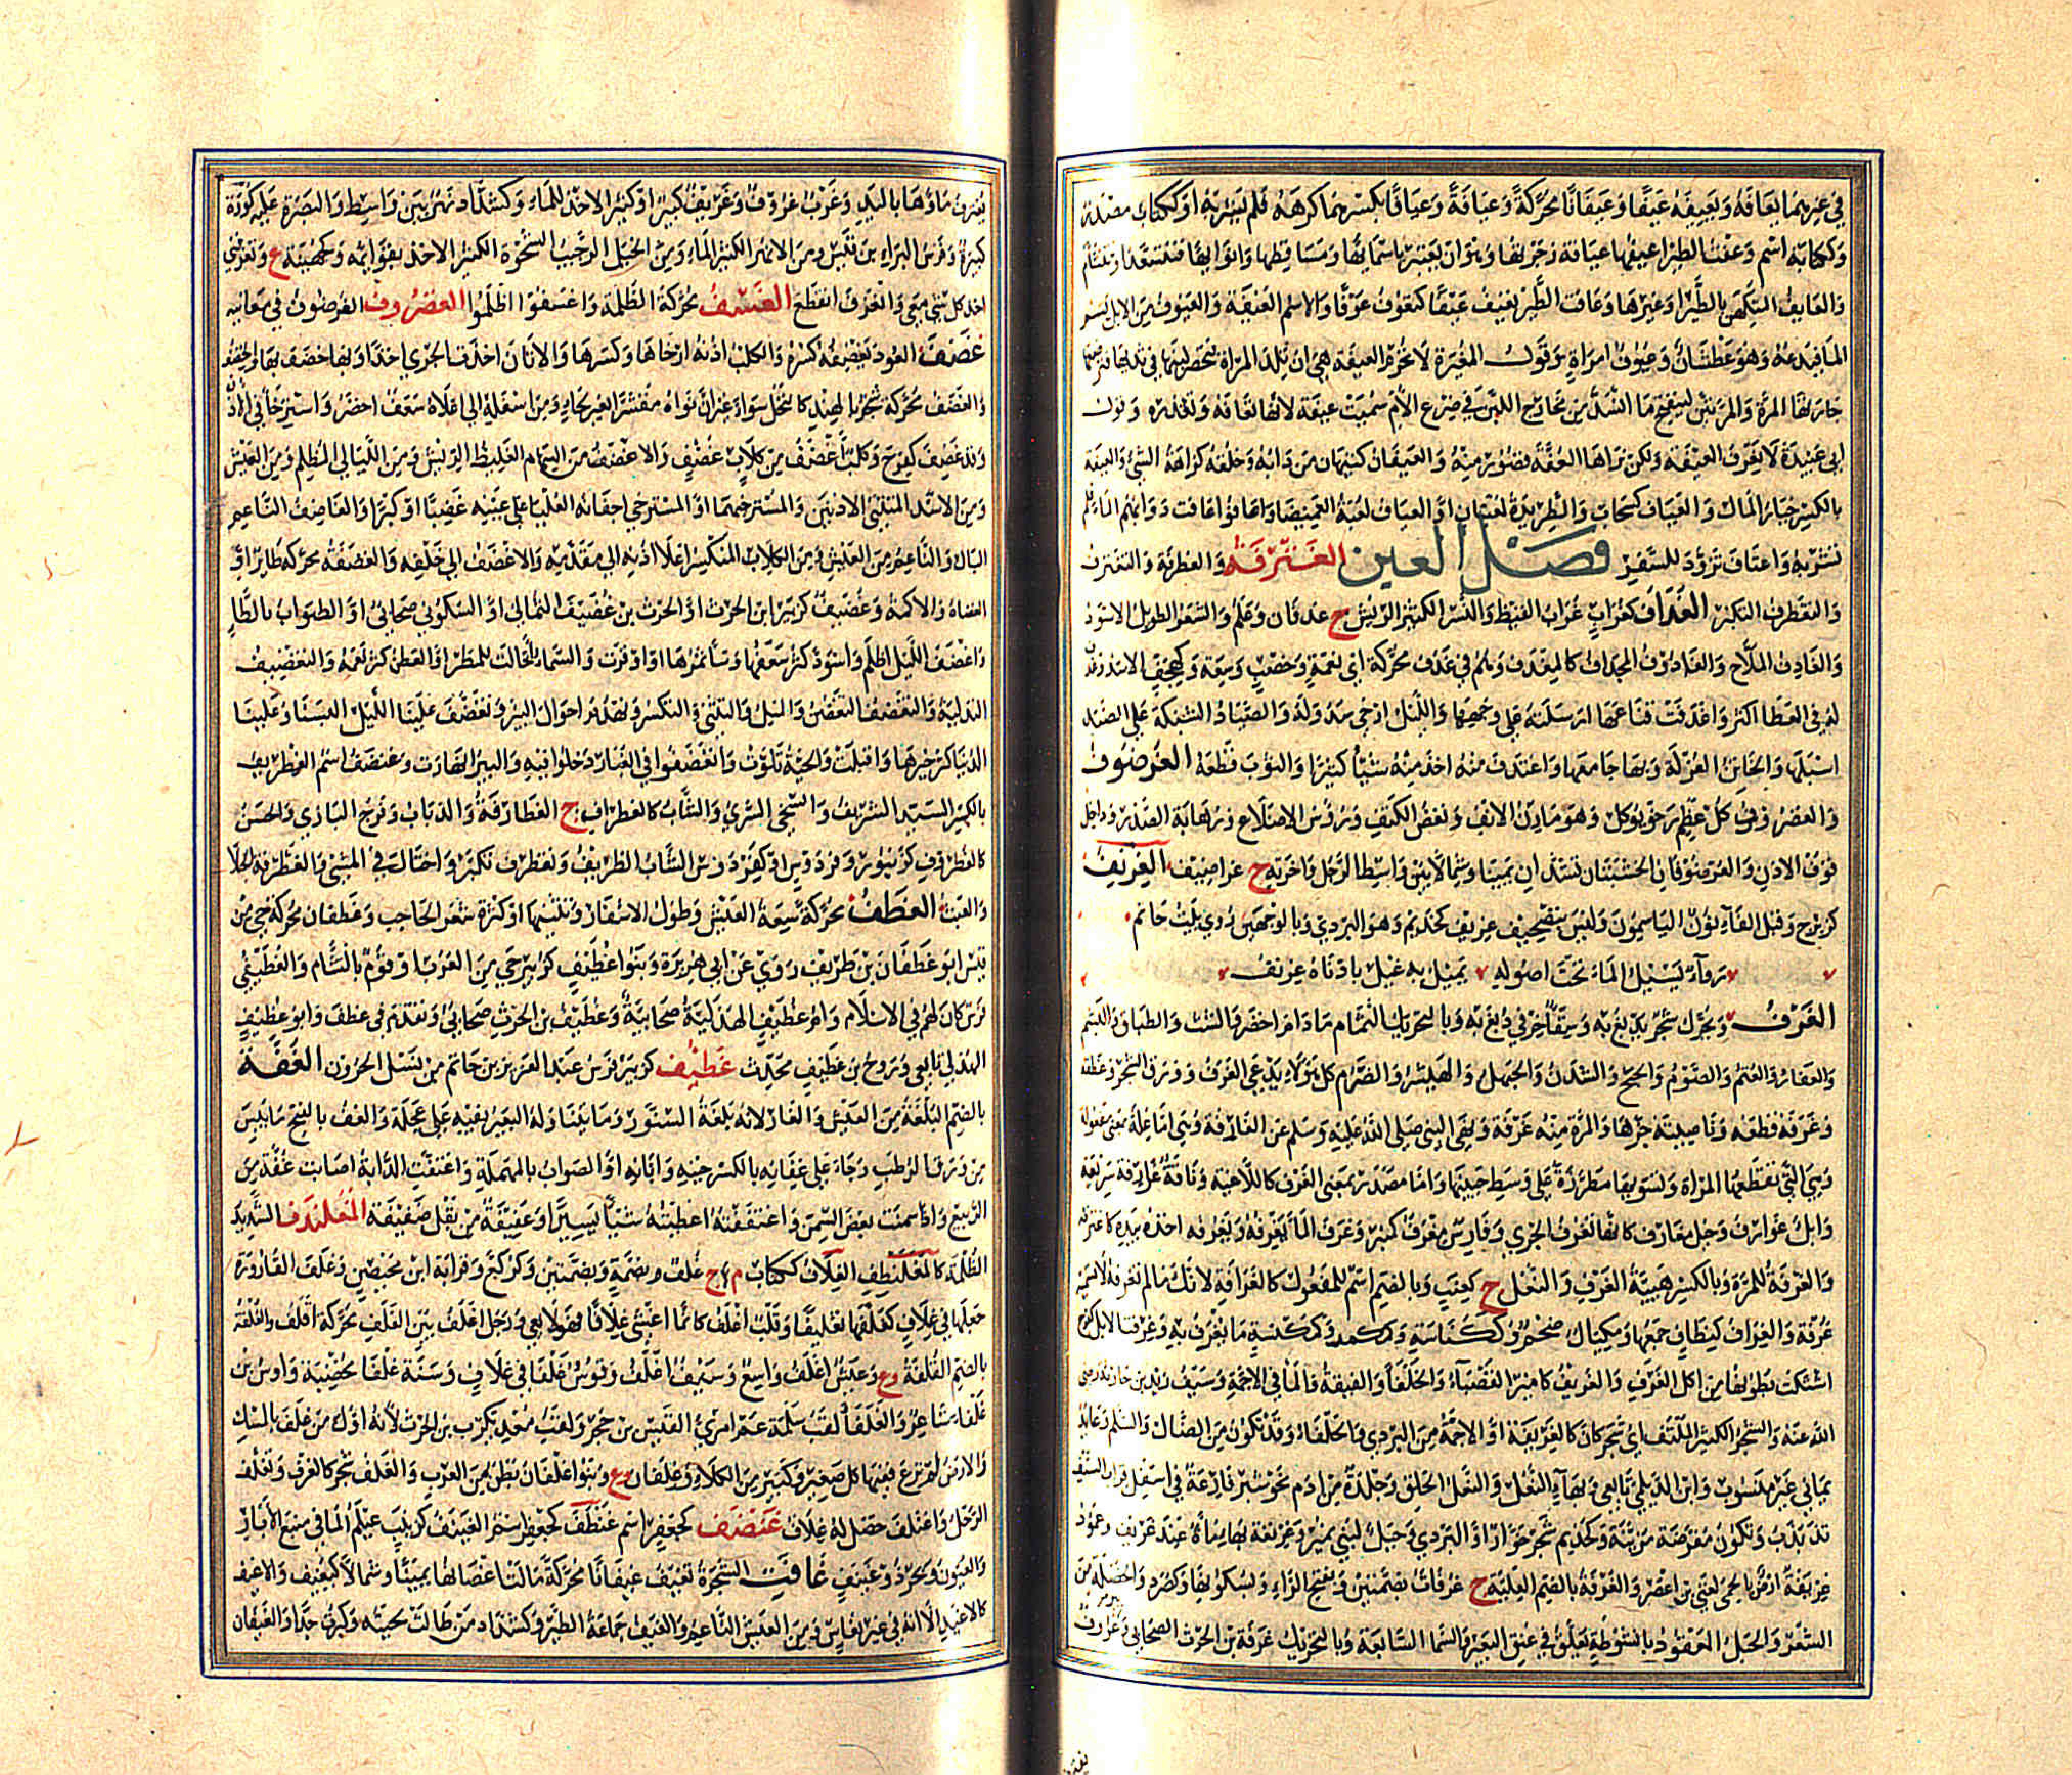 في غيرهما يعافه ويعيفه عيفا وعيفانا محركة وعيافة وعيافا بكسرهما كرهه فلم يشربه او ككتاب مصدر
وككتابة اسم وعفت الطير اعيفها عيافة زجرتها وهو ان يعتبر باسمائها ومساقطها وانوائها فيتسعد او يتشام
والعايف المتكهن بالطير او غيرها وعافت الطير تعيف عيفا كتعوف عوفا والاسم العيفة والعيوف من الابل الذي يشم
الما فيدعه وهو عطشان وعيوف امراة وقول المغيرة لا تحرم العيفة هي ان تلد المراة فيحصر لبنها في ثديها فترضعها
جارتها المرة والمرتين لينفتح ما انسد من مخارج اللبن في ضرع الام سميت عيفة لانها تعافه وتقذره وقول
ابي عبيدة لا نعرف العيفة ولكن نراها العفة قصور منه والعيفان كتيهان من دابه وخلقه كراهة الشي والعيفة
بالكسر خيار المال والعياف كسحاب والطريدة لعبتان او العياف لعبة الغميصا واعافوا عافت دوابهم الماء فلم
تشربه واعتاف تزود للسفر فصل الغين الغترفة والغطرفة والتغترف
والتغطرف التكبر الغداف كغراب غراب القيظ والنسر الكثير الريش ج غدفان وعلم والشعر الطويل الاسود
والغادف الملاح والغادوف المجداف كالمغدف وهم في غدف محركة اي نعمة وخصب وسعة وكهجف الاسد وغدف
له في العطا اكثر واغدفت قناعها ارسلته على وجهها والليل ارخى سدوله والصياد الشبكة على الصيد
اسبلها والخاتن الغرلة وبها جامعها واغتدف منه اخذ منه شيئا كثيرا والثوب قطعه الغرضوف
والغضروف كل عظم رخص يوكل وهو مارن الانف ونغض الكتف ورؤس الاضلاع ورهابة الصدر وداخل
قوف الاذن والغرضوفان الخشبتان تشدان يمينا وشمالا بين واسط الرحل واخرته ج غراضيف الغريف
كزبرج وقبل الفاء نون الياسمون وليس بتصحيف غريف كحذيم وهو البردي وبالوجهين روي بيت حاتم
رواء يسيل الماء تحت اصوله يميل به غيل بادناه غرنف
الغرف ويحرك شجر يدبغ به وسقاء غرفي دبغ به وبالتحريك الثمام ما دام اخضر والشث والطباق والبشم
والعفار والعتم والصوم والحبج والشدن والحيهل والهيشر والضرم كل هؤلاء يدعى الغرف وورق الشجر وغلظه
وغرفه قطعه وناصيته جزها والمرة منه غرفة ونهى النبي صلى الله عليه وسلم عن الغارفة وهي اما فاعلة بمعنى مفعولة
وهي التي تقطعها المراة وتسويها مطرزة على وسط جبينها واما مصدر بمعنى الغرف كاللاغية وناقة غارفة سريعة
وابل غوارف وخيل مغارف كانها تغرف الجري وفارس مغرف كمنبر وغرف الماء يغرفه ويغرفه اخذه بيده كاغترفه
والغرفة للمرة وبالكسر هيئة الغرف والنعل ج كعنب وبالضم اسم للمفعول كالغرافة لانك ما لم تغرفه لا تسميه
غرفة والغراف كنطاف جمعها ومكيال ضخم وككناسة وكمكنسة ما يغرف به وغرفت الابل كفرح
اشتكت بطونها من اكل الغرف والغريف كامير القصباء والحلفا والغيضة والما في الاجمة وسيف زيد بن حارثة رضي
الله عنه والشجر الكثير الملتف اي شجر كان كالغريفة او الاجمة من البردي والحلفاء وقد تكون من الضال والسلم وعابد
يماني غير منسوب وابن الديلمي تابعي وبهاء النعل والنعل الخلق وجلدة من ادم نحو شبر فارغة في اسفل قراب السيف
تذبذب وتكون مفرضة مزينة وكحذيم شجر خوار او البردي وجبل لبني نمير وغريفة بها ماءة عند غريف وعمود
غريفة ارض بالحمى لغني بن اعصر والغرفة بالضم العلية ج غرفات بضمتين وبفتح الراء وبسكونها وكصرد والخصلة من
الشعر والحبل المعقود بانشوطة يعلق في عنق البعير والسما السابعة وبالتحريك غرفة بن الحرث الصحابي وغروف
يغترف ماؤها باليد وغرب غروف وغريف كبير او كثير الاخذ للماء وكشداد نهر بين واسط والبصرة عليه كورة
كبيرة وفرس البراء بن قيس ومن الانهر الكثير الماء ومن الخيل الرحيب الشحوة الكثير الاخذ بقوائمه وكجهينة ع وتغرفني
اخذ كل شي معي وانغرف انقطع الغسف محركة الظلمة واغسفوا اظلموا الغضروف الغرضوف في معانيه
غضف العود يغضفه كسره والكلب اذنه ارخاها وكسرها والاتان اخذت الجري اخذا وبها خضف بها
والغضف محركة شجر بالهند كالنخل سواء غير ان نواه مقشر بغير لحاء ومن اسفله الى اعلاه سعف اخضر واسترخاء في الاذن
وقد غضف كفرح وكلب اغضف من كلاب غضف والاغضف من السهام الغليظ الريش ومن الليالي المظلم ومن العيش
ومن الاسد المتثني الاذنين والمسترخيهما او المسترخي اجفانه العليا على عينيه غضبا او كبرا والغاضف الناعم
البال والناعم من العيش ومن الكلاب المنكسر اعلا اذنه الى مقدمه والاغضف الى خلفه والغضفة محركة طاير او
القطاة والاكمة وغضيف كزبير ابن الحرث او الحرث بن غضيف الثمالي او السكوني صحابي او الصواب بالطاء
واغضف الليل اظلم واسود كثر سعفها وساء ثمرها او اوقرت والسماء اخالت للمطر والعطن كثر نعمه والتغضيف
التدلية والتغضف التغضن والميل والتثني والتكسر وتهدم اجوال البير وتغضف علينا الليل البسنا وعلينا
الدنيا كثر خيرها واقبلت والحية تلوت وانغضفوا في الغبار دخلوا فيه والبير انهارت وغنضف اسم الغطريف
بالكسر السيد الشريف والسخي السري والشاب كالغطراف ج الغطارفة والذباب وفرخ البازي والحسن
كالغطروف كزنبور وفردوس او كفردوس الشاب الظريف وتغطرف تكبر واختال في المشي والغطرفة الخيلاء
والعبث الغطف محركة سعة العيش وطول الاشفار وتثنيها او كثرة شعر الحاجب وغطفان محركة حي من
قيس ابو غطفان بن طريف روى عن ابي هريرة وبنو غطيف كزبير حي من العرب او قوم بالشام والغطيفي
فرس كان لهم في الاسلام وام غطيف الهذلية صحابية وغطيف بن الحرث صحابي وتقدم في غضف وابو غطيف
الهذلي تابعي وروح بن غطيف محدث غطيف كزبير فرس عبد العزيز بن حاتم من نسل الحرون الغفة
بالضم البلغة من العيش والفار لانه بلغة السنور وما يتناوله البعير بفيه على عجلة والغف بالفتح ما يبس
من ورق الرطب وجاء على غفانه بالكسر حينه وابانه او الصواب بالمهملة واغتفت الدابة اصابت غفة من
الربيع واذا سمنت بعض السمن واغتففته اعطيته شيئا يسيرا وغفيفة من بقل ضغيفة المغلندف الشديد
الظلمة كالمغلنطف الغلاف ككتاب م ج غلف بضمة وبضمتين وكركع وقراءة ابن محيصن وغلف القارورة
جعلها في غلاف كغلفها تغليفا وقلب اغلف كانما اغشي غلافا فهو لا يعي ورجل اغلف بين الغلف محركة اقلف والغلفة
بالضم القلفة وع وعيش اغلف واسع وسيف اغلف وقوس غلفا في غلاف وسنة غلفا مخصبة واوس بن
غلفاء شاعر والغلفاء لقب سلمة عم امرئ القيس بن حجر ولقب معدي كرب بن الحرث لانه اول من غلف بالمسك
والارض لم ترع ففيها كل صغير وكبير من الكلاء وغلفان ع وبنو غلفان بطن من العرب والغلف شجر كالغرف وتغلف
الرحل واغتلف حصل له غلاف غنضف كجعفر اسم غنطف كجعفر اسم الغينف كزينب غيلم الما في منبع الآبار
والعيون وبحر ذو غينف غافت الشجرة تغيف غيفانا محركة مالت اغصانها يمينا وشمالا كتغيف والاغيف
كالاغيد الا انه في غير نعاس ومن العيش الناعم والغيف جماعة الطير وكشداد من طالت لحيته وكبرت جدا والغيفان
يغترف